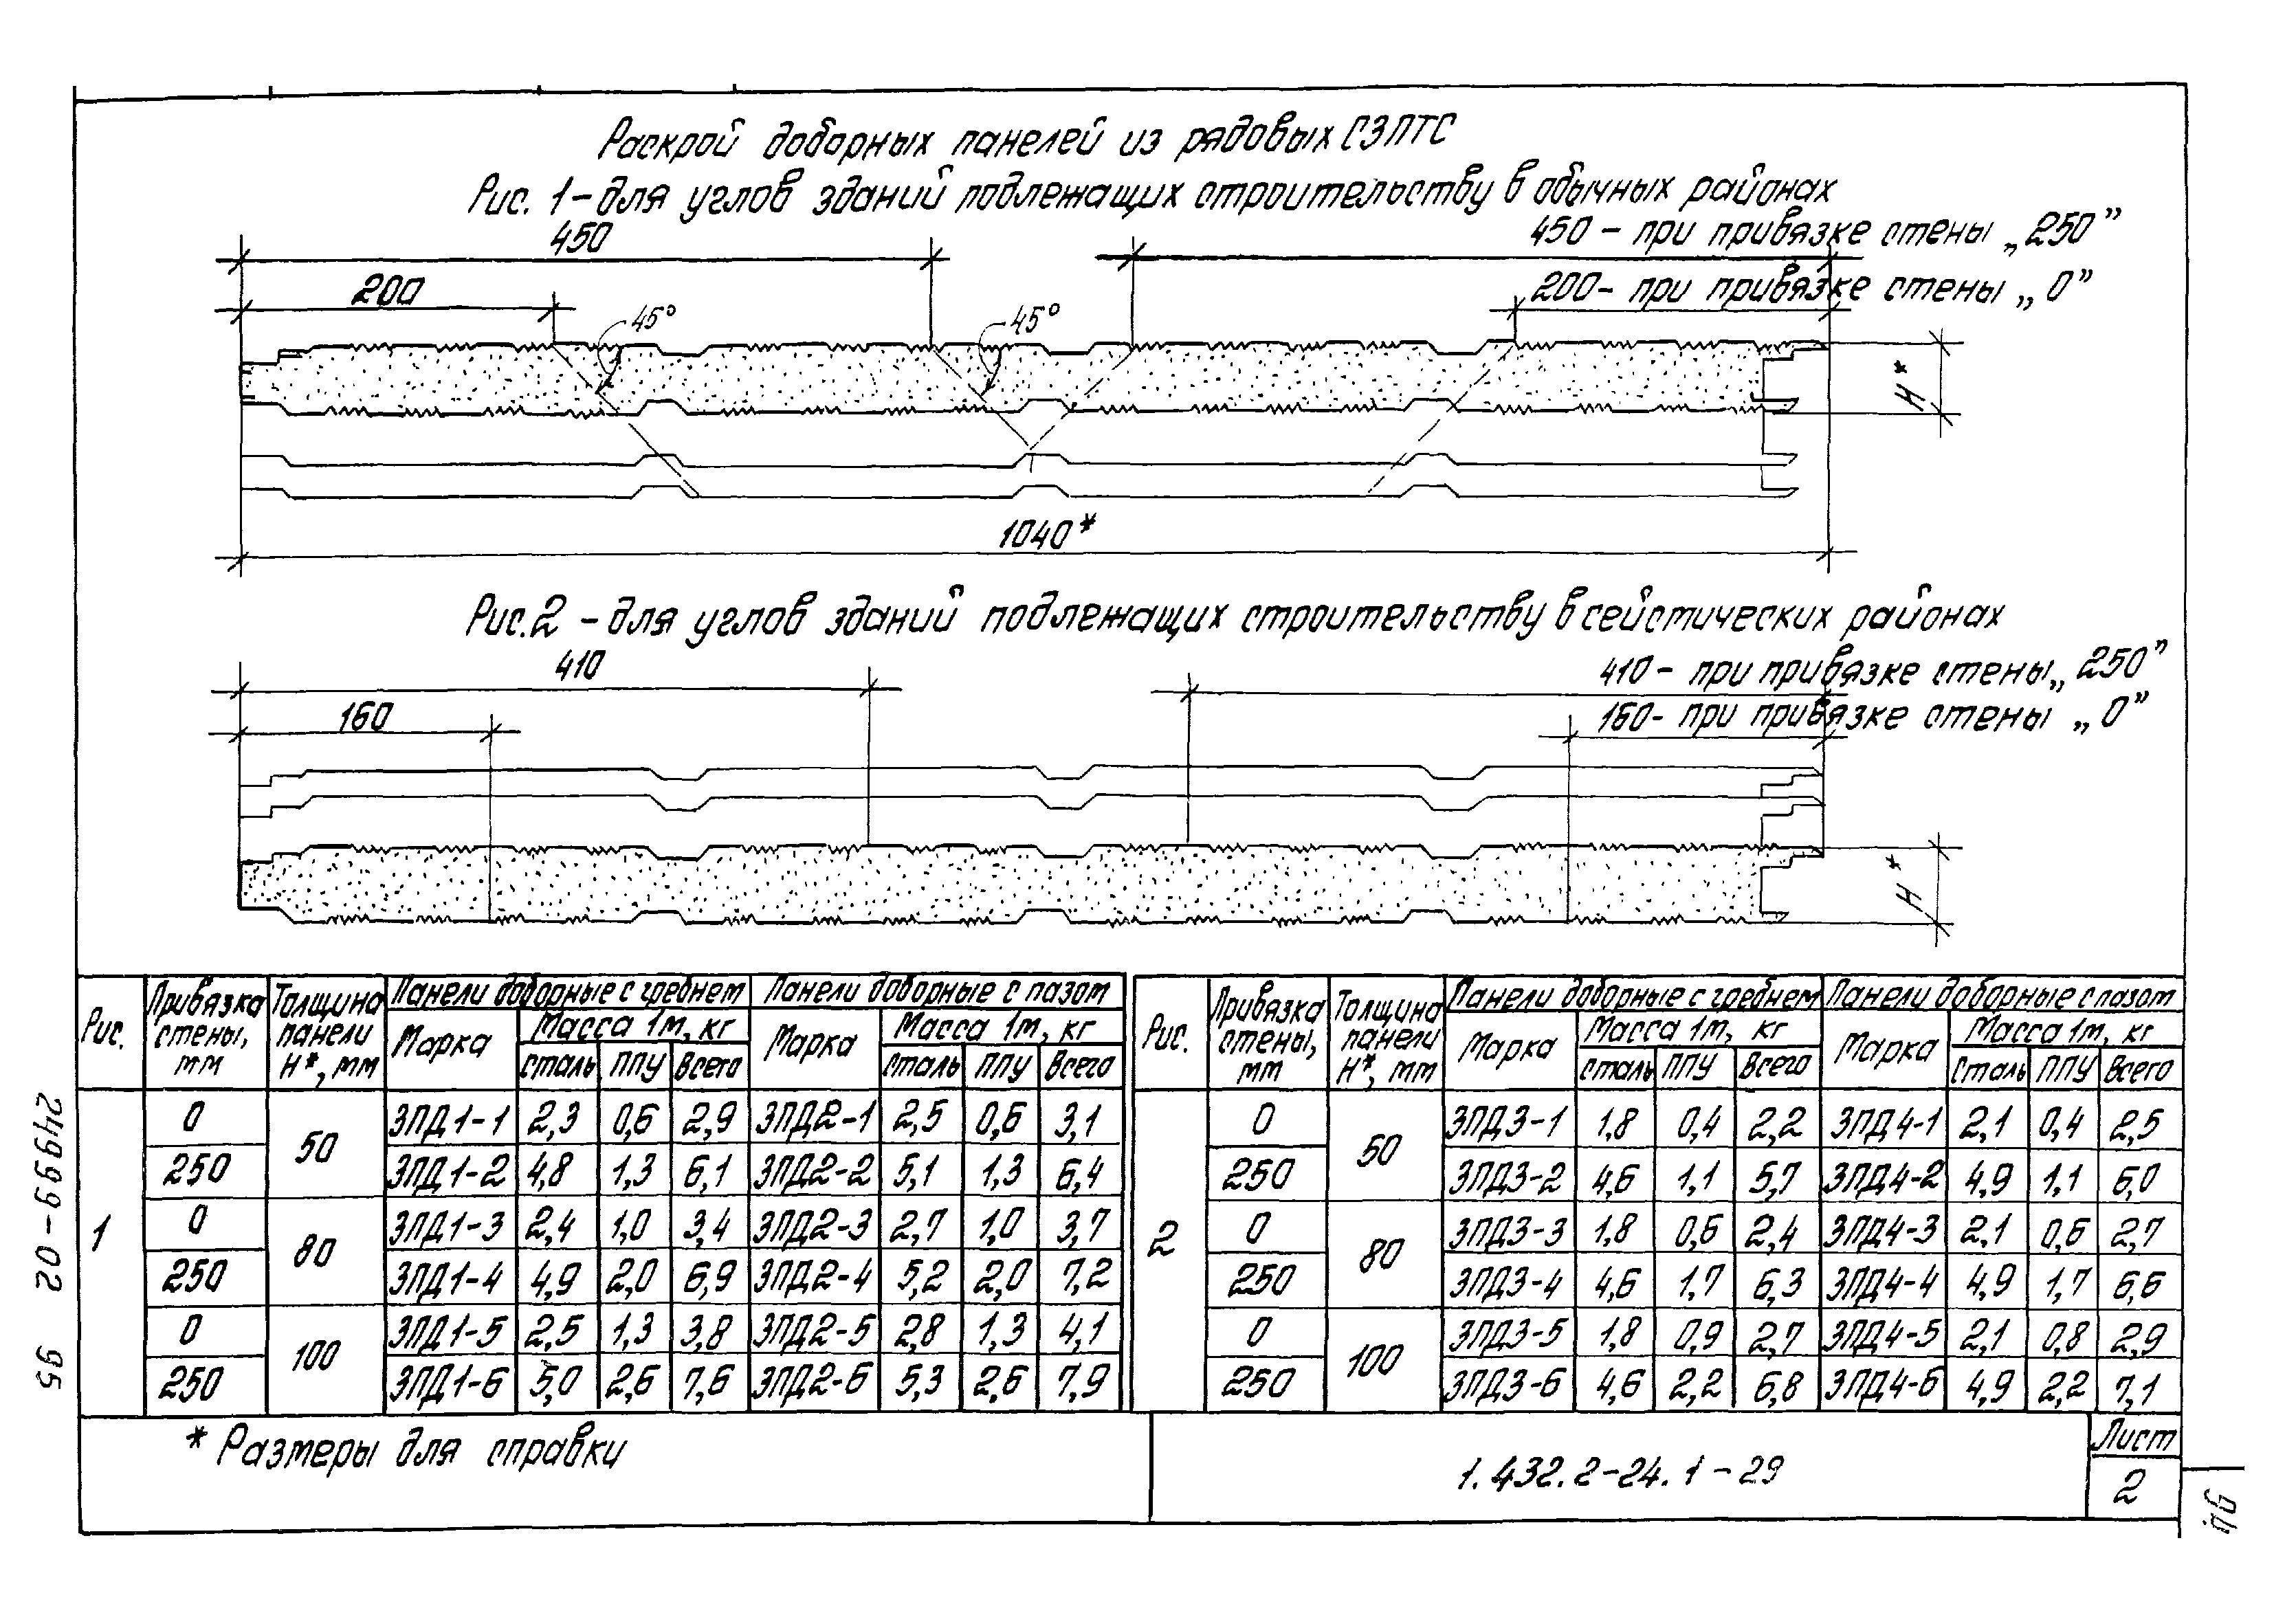 Раскрой доборных панелей из рядовых СЗПТС
Рис. 1 - для углов зданий подлежащих строительству в обычных районах
450
450 - при привязке стены „250”
200
200 - при привязке стены „0”
45°
45°
H*
1040*
Рис. 2 - для углов зданий подлежащих строительству в сейсмических районах
410
410 - при привязке стены „250”
160
160 - при привязке стены „0”
H*
Рис. | Привязка стены, мм | Толщина панели H*, мм | Панели доборные с гребнем | Панели доборные с пазом
Марка | Масса 1м, кг | Марка | Масса 1м, кг
сталь | ППУ | Всего | сталь | ППУ | Всего
1 | 0 | 50 | ЗПД1-1 | 2,3 | 0,6 | 2,9 | ЗПД2-1 | 2,5 | 0,6 | 3,1
250 | ЗПД1-2 | 4,8 | 1,3 | 6,1 | ЗПД2-2 | 5,1 | 1,3 | 6,4
0 | 80 | ЗПД1-3 | 2,4 | 1,0 | 3,4 | ЗПД2-3 | 2,7 | 1,0 | 3,7
250 | ЗПД1-4 | 4,9 | 2,0 | 6,9 | ЗПД2-4 | 5,2 | 2,0 | 7,2
0 | 100 | ЗПД1-5 | 2,5 | 1,3 | 3,8 | ЗПД2-5 | 2,8 | 1,3 | 4,1
250 | ЗПД1-6 | 5,0 | 2,6 | 7,6 | ЗПД2-6 | 5,3 | 2,6 | 7,9
Рис. | Привязка стены, мм | Толщина панели H*, мм | Панели доборные с гребнем | Панели доборные с пазом
Марка | Масса 1м, кг | Марка | Масса 1м, кг
сталь | ППУ | Всего | сталь | ППУ | Всего
2 | 0 | 50 | ЗПД3-1 | 1,8 | 0,4 | 2,2 | ЗПД4-1 | 2,1 | 0,4 | 2,5
250 | ЗПД3-2 | 4,6 | 1,1 | 5,7 | ЗПД4-2 | 4,9 | 1,1 | 6,0
0 | 80 | ЗПД3-3 | 1,8 | 0,6 | 2,4 | ЗПД4-3 | 2,1 | 0,6 | 2,7
250 | ЗПД3-4 | 4,6 | 1,7 | 6,3 | ЗПД4-4 | 4,9 | 1,7 | 6,6
0 | 100 | ЗПД3-5 | 1,8 | 0,9 | 2,7 | ЗПД4-5 | 2,1 | 0,8 | 2,9
250 | ЗПД3-6 | 4,6 | 2,2 | 6,8 | ЗПД4-6 | 4,9 | 2,2 | 7,1
* Размеры для справки
1.432.2-24.1-29
Лист
2
24999-02 95